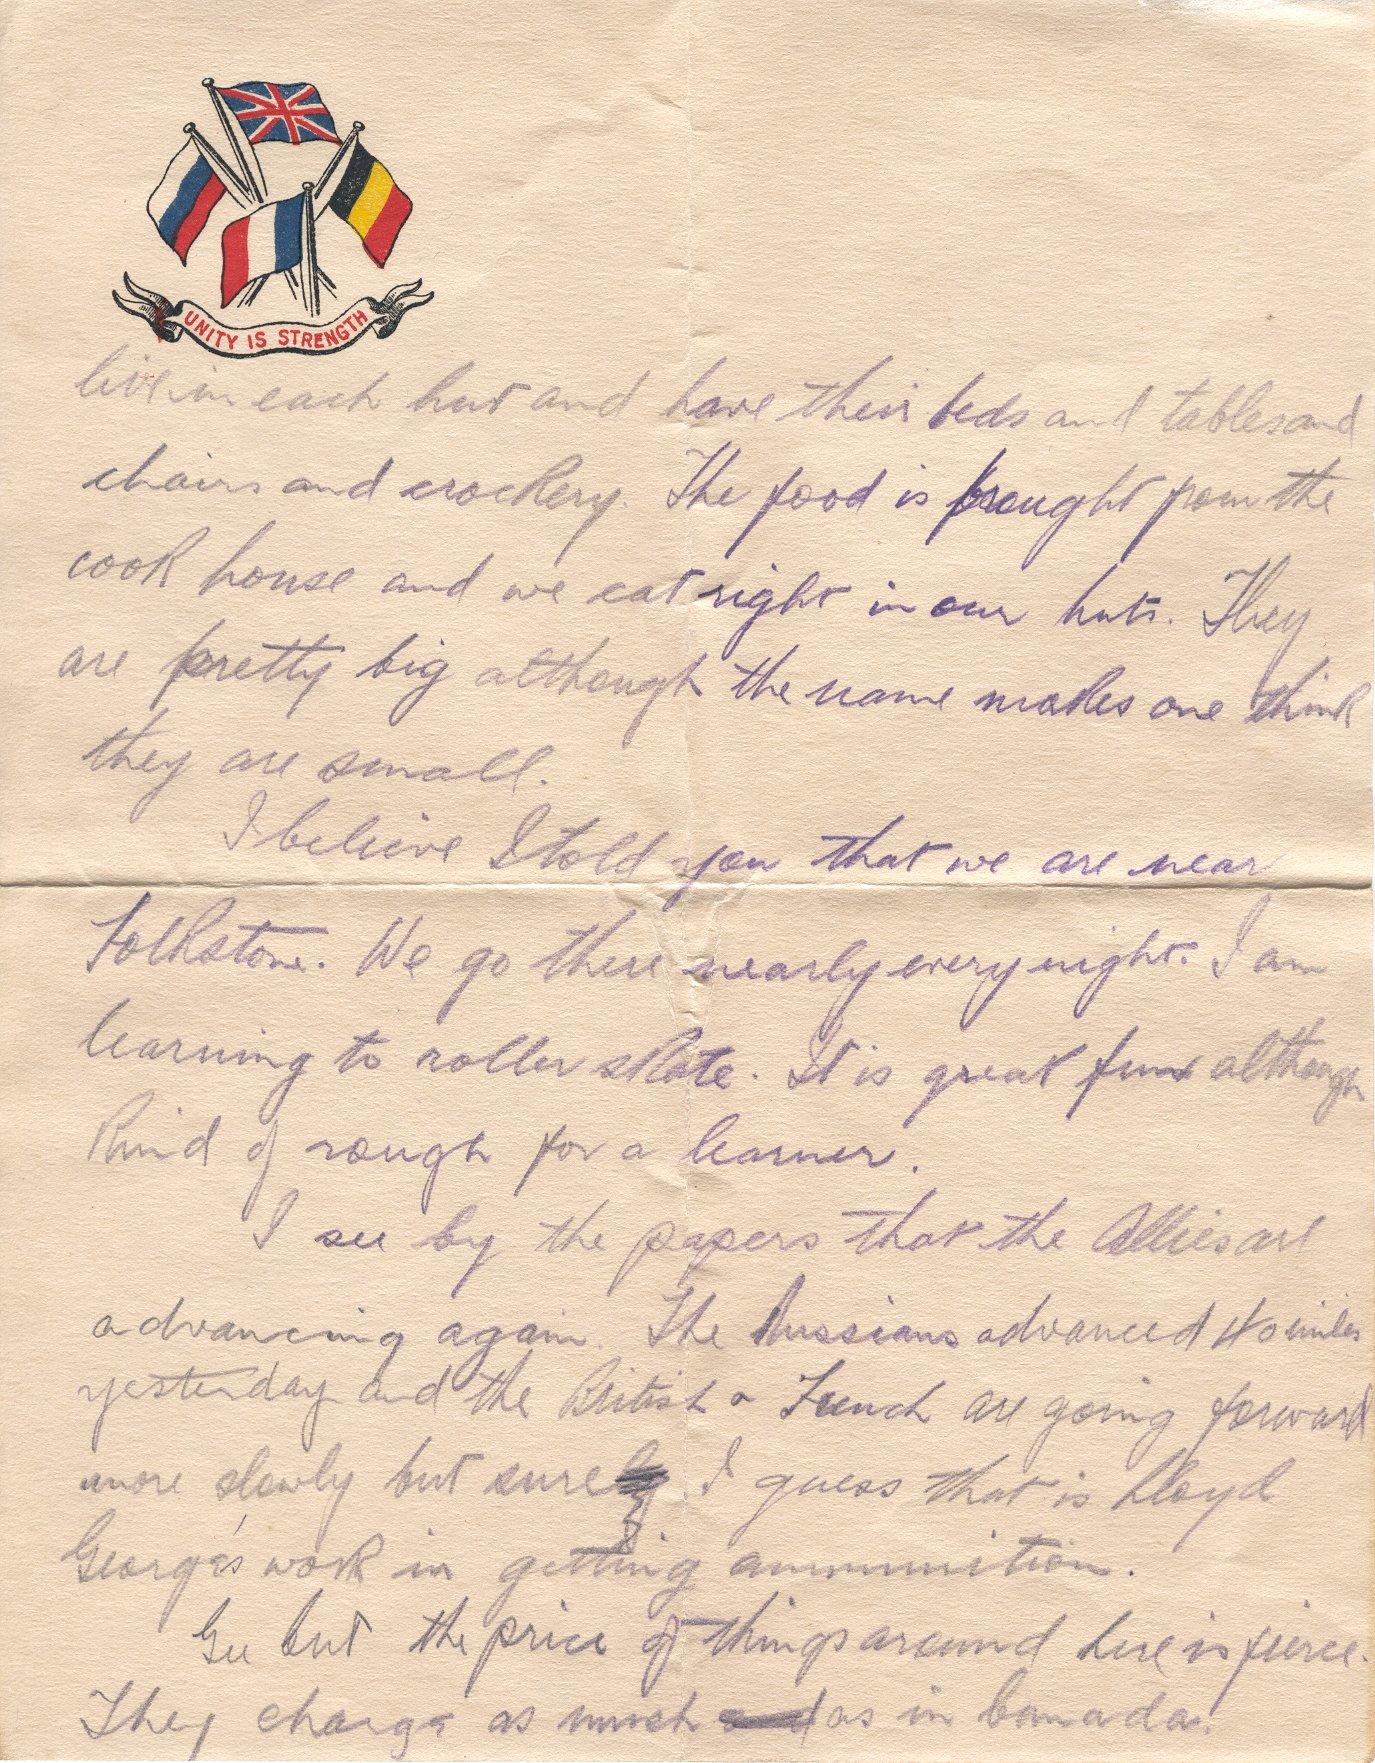 UNITY IS STRENGTH
live in each hut and have their beds and tables and
chairs and crockery. The food is brought from the
cook house and we eat right in our huts. They
are pretty big although the name makes one think
they are small.
I believe I told you that we are near
Folkstone. We go there nearly every night. I am
learning to roller skate. It is great fun although
kind of rough for a learner.
I see by the papers that the Allies are
advancing again. The Russians advanced 40 miles
yesterday and the British & French are going forward
more slowly but surely I guess that is Lloyd
George's work in getting ammunition.
Gee but the price of things around here is fierce.
They charge as much as in Canada.